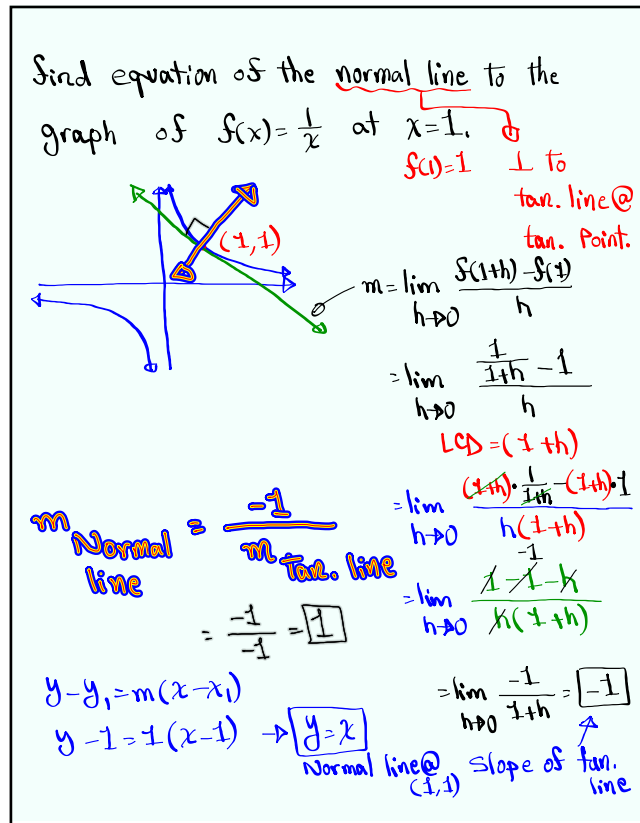 find equation of the normal line to the
graph of f(x)= 1/x at x=1.
f(1)=1 ⊥ to
tan. line@
tan. Point.
(1,1)
m = lim h→0 (f(1+h) - f(1))/h
= lim h→0 (1/(1+h) - 1)/h
LCD = (1+h)
= lim h→0 ((1+h)·1/(1+h) - (1+h)·1)/(h(1+h))
-1
= lim h→0 (1-1-h)/(h(1+h))
= lim h→0 -1/(1+h) = -1
Slope of tan. line
m Normal line = -1/(m Tan. line)
= -1/-1 = 1
y-y₁=m(x-x₁)
y-1=1(x-1) → y=x
Normal line@ (1,1)